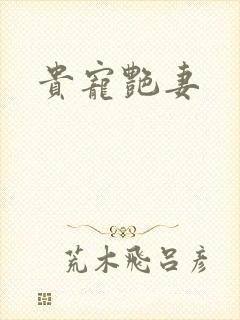 貴寵艷妻
荒木飛呂彥